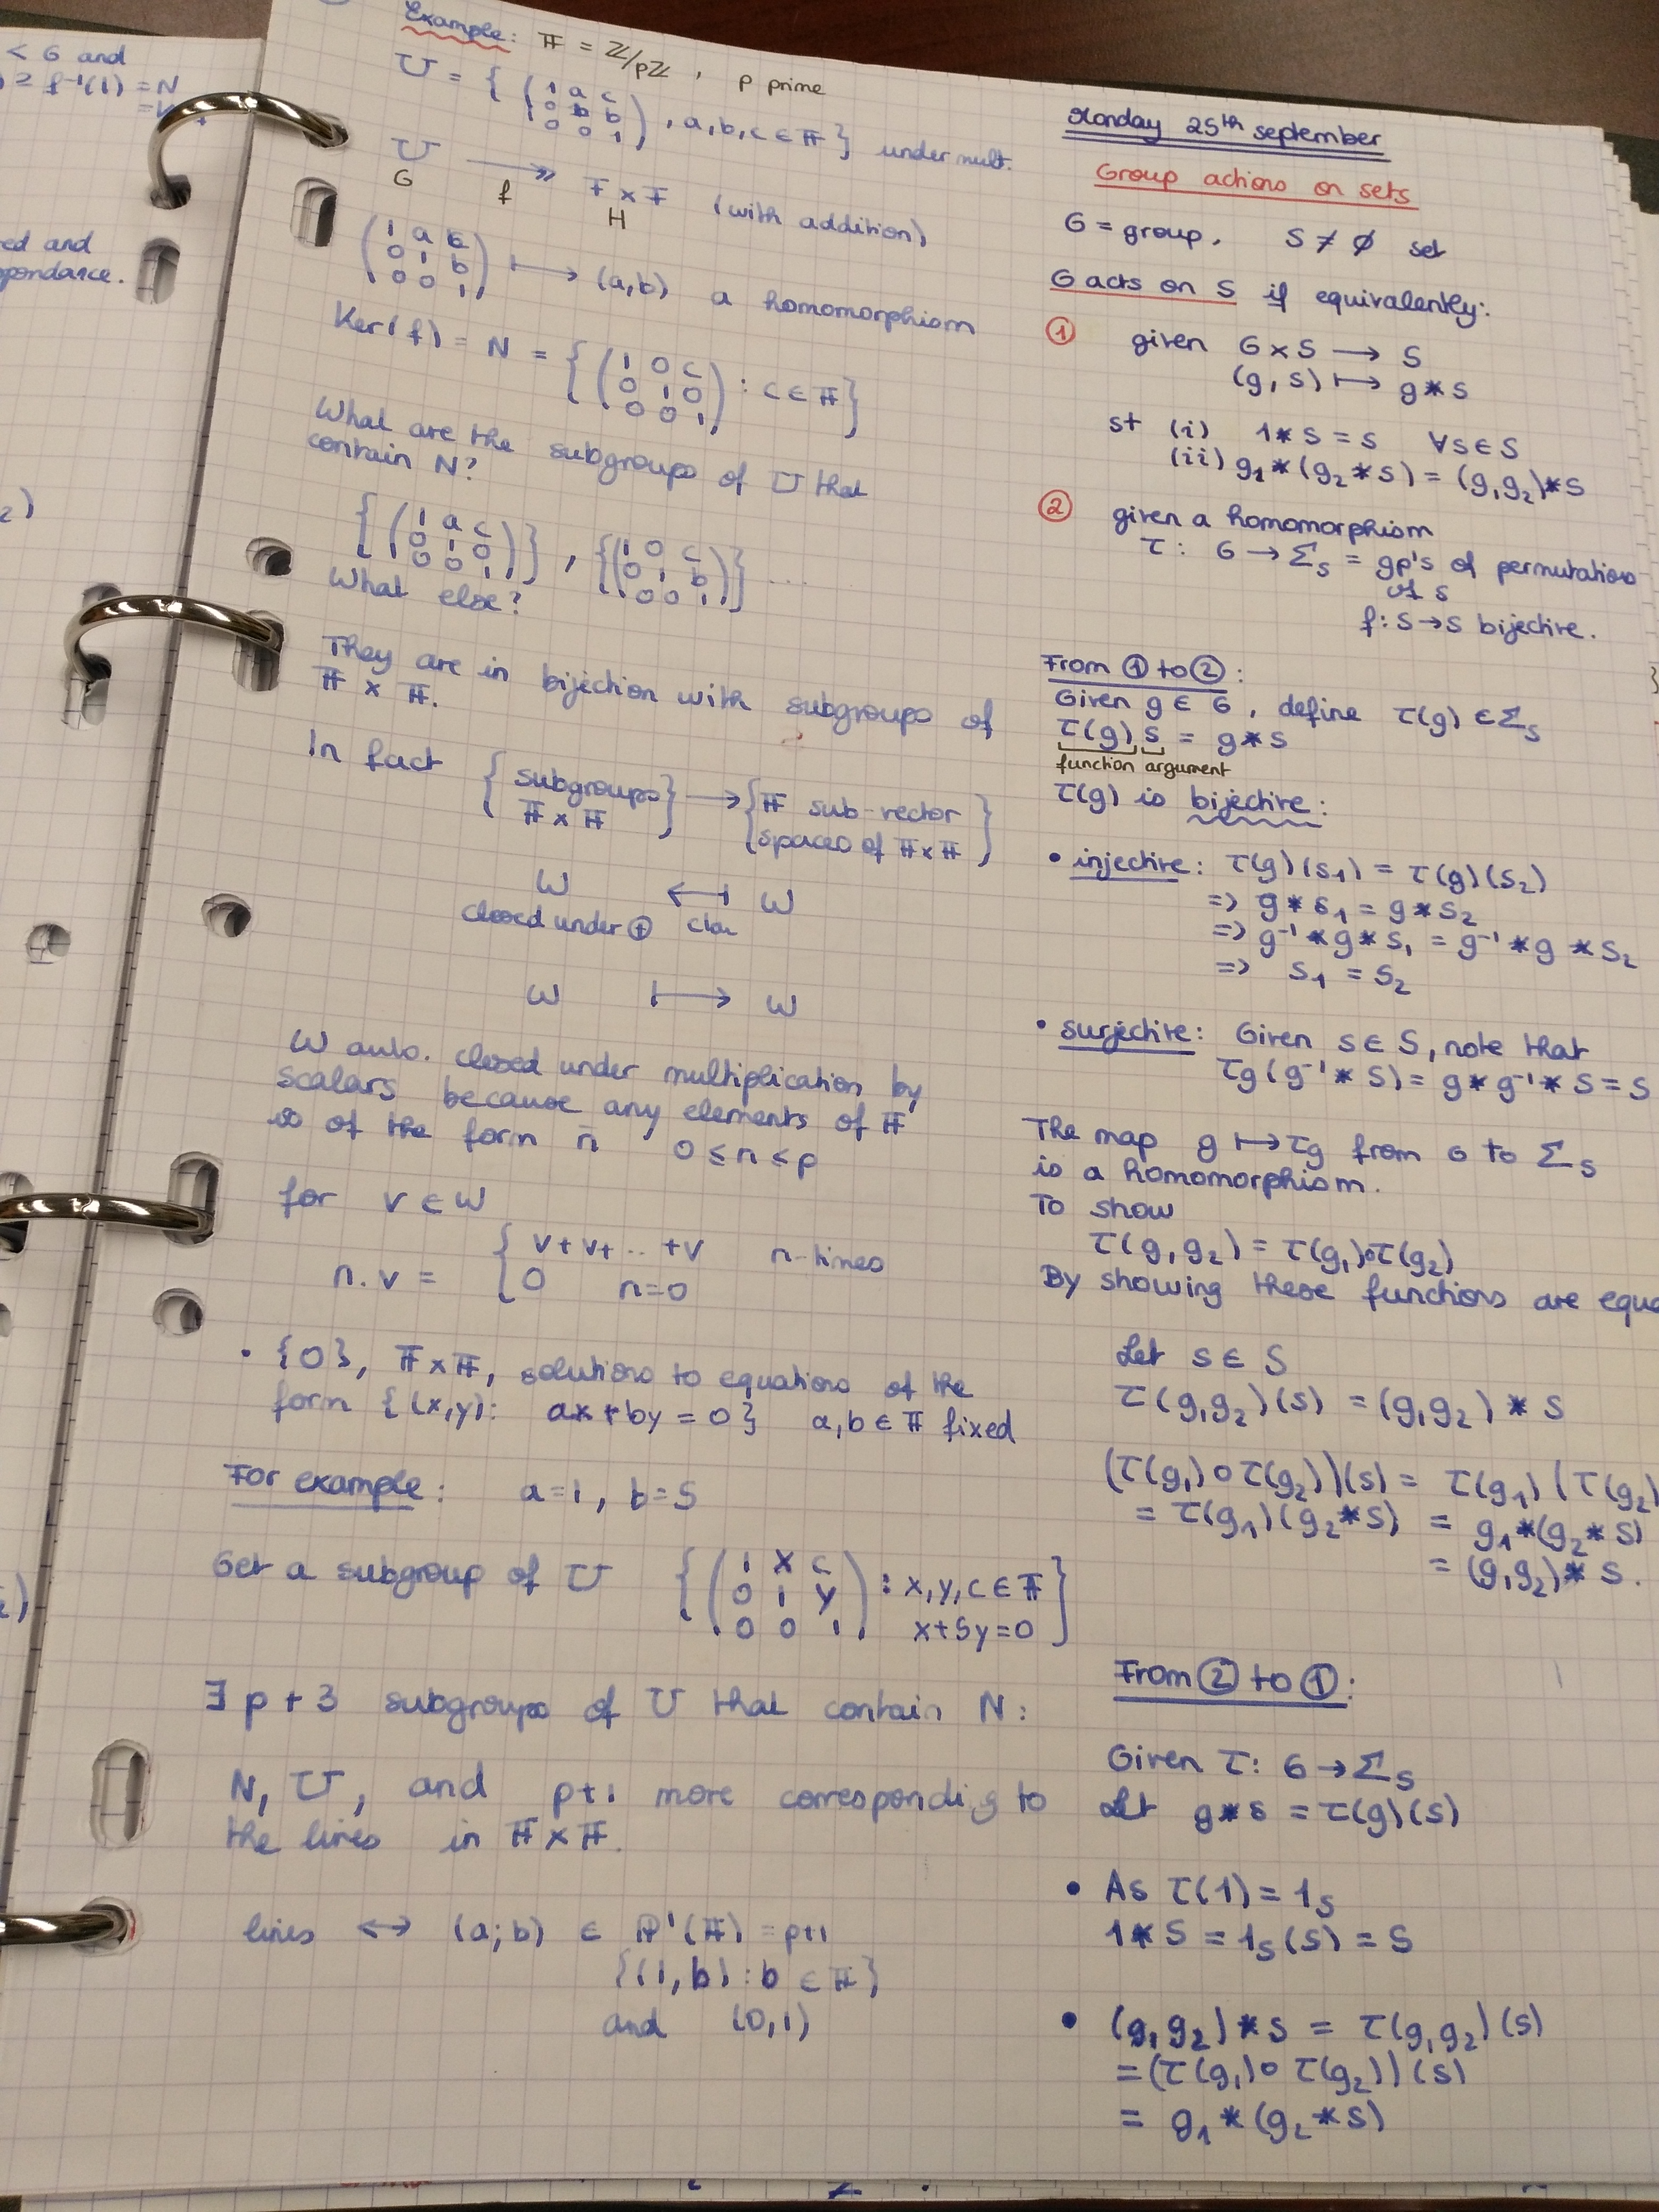 < G and
) ≥ f⁻¹(1) = N
ed and
pondance.
Example: 𝔽 = ℤ/pℤ , p prime
U = { ( 1 a c
0 b b
0 0 1 ) , a, b, c ∈ 𝔽 } under mult.
U ↠ 𝔽 × 𝔽 (with addition)
G f H
( 1 a c
0 1 b
0 0 1 ) ⟼ (a,b) a homomorphism
Ker(f) = N = { ( 1 0 c
0 1 0
0 0 1 ) : c ∈ 𝔽 }
What are the subgroups of U that
contain N?
{ ( 1 a c
0 1 0
0 0 1 ) } , { ( 1 0 c
0 1 b
0 0 1 ) } ....
What else?
They are in bijection with subgroups of
𝔽 × 𝔽.
In fact { subgroups
𝔽 × 𝔽 } ⟶ { 𝔽 sub-vector
spaces of 𝔽×𝔽 }
W ⟻ W
closed under ⊕ clear
W ⟼ W
W auto. closed under multiplication by
scalars because any elements of 𝔽
is of the form n̄ 0 ≤ n ≤ p
for v ∈ W
n.v = { v + v + .. + v n-times
0 n=0
• {0}, 𝔽×𝔽, solutions to equations of the
form {(x,y): ax+by = 0} a, b ∈ 𝔽 fixed
For example: a=1, b=5
Get a subgroup of U { ( 1 x c
0 1 y
0 0 1 ) : x, y, c ∈ 𝔽
x+5y=0 }
∃ p + 3 subgroups of U that contain N:
N, U, and p+1 more correspondig to
the lines in 𝔽 × 𝔽.
lines ⟷ (a;b) ∈ ℙ¹(𝔽) = p+1
{(1,b) : b ∈ 𝔽}
and (0,1)
Monday 25th september
Group actions on sets
G = group, S ≠ ∅ set
G acts on S if equivalently:
① given G × S ⟶ S
(g, s) ⟼ g * s
st (i) 1 * s = s ∀s ∈ S
(ii) g₁ * (g₂ * s) = (g₁g₂) * s
② given a homomorphism
τ : G → Σₛ = gp's of permutations
of S
f: S → S bijective.
From ① to ②:
Given g ∈ G, define τ(g) ∈ Σₛ
τ(g) s = g * s
function argument
τ(g) is bijective:
• injective: τ(g)(s₁) = τ(g)(s₂)
=> g * s₁ = g * s₂
=> g⁻¹ * g * s₁ = g⁻¹ * g * s₂
=> s₁ = s₂
• surjective: Given s ∈ S, note that
τg(g⁻¹ * s) = g * g⁻¹ * s = s
The map g ⟼ τg from G to Σₛ
is a homomorphism.
To show
τ(g₁g₂) = τ(g₁)∘τ(g₂)
By showing these functions are equa
Let s ∈ S
τ(g₁g₂)(s) = (g₁g₂) * s
(τ(g₁) ∘ τ(g₂))(s) = τ(g₁)(τ(g₂)
= τ(g₁)(g₂ * s) = g₁ * (g₂ * s)
= (g₁g₂) * s.
From ② to ①:
Given τ: G → Σₛ
Let g * s = τ(g)(s)
• As τ(1) = 1ₛ
1 * s = 1ₛ(s) = s
• (g₁g₂) * s = τ(g₁g₂)(s)
= (τ(g₁) ∘ τ(g₂))(s)
= g₁ * (g₂ * s)